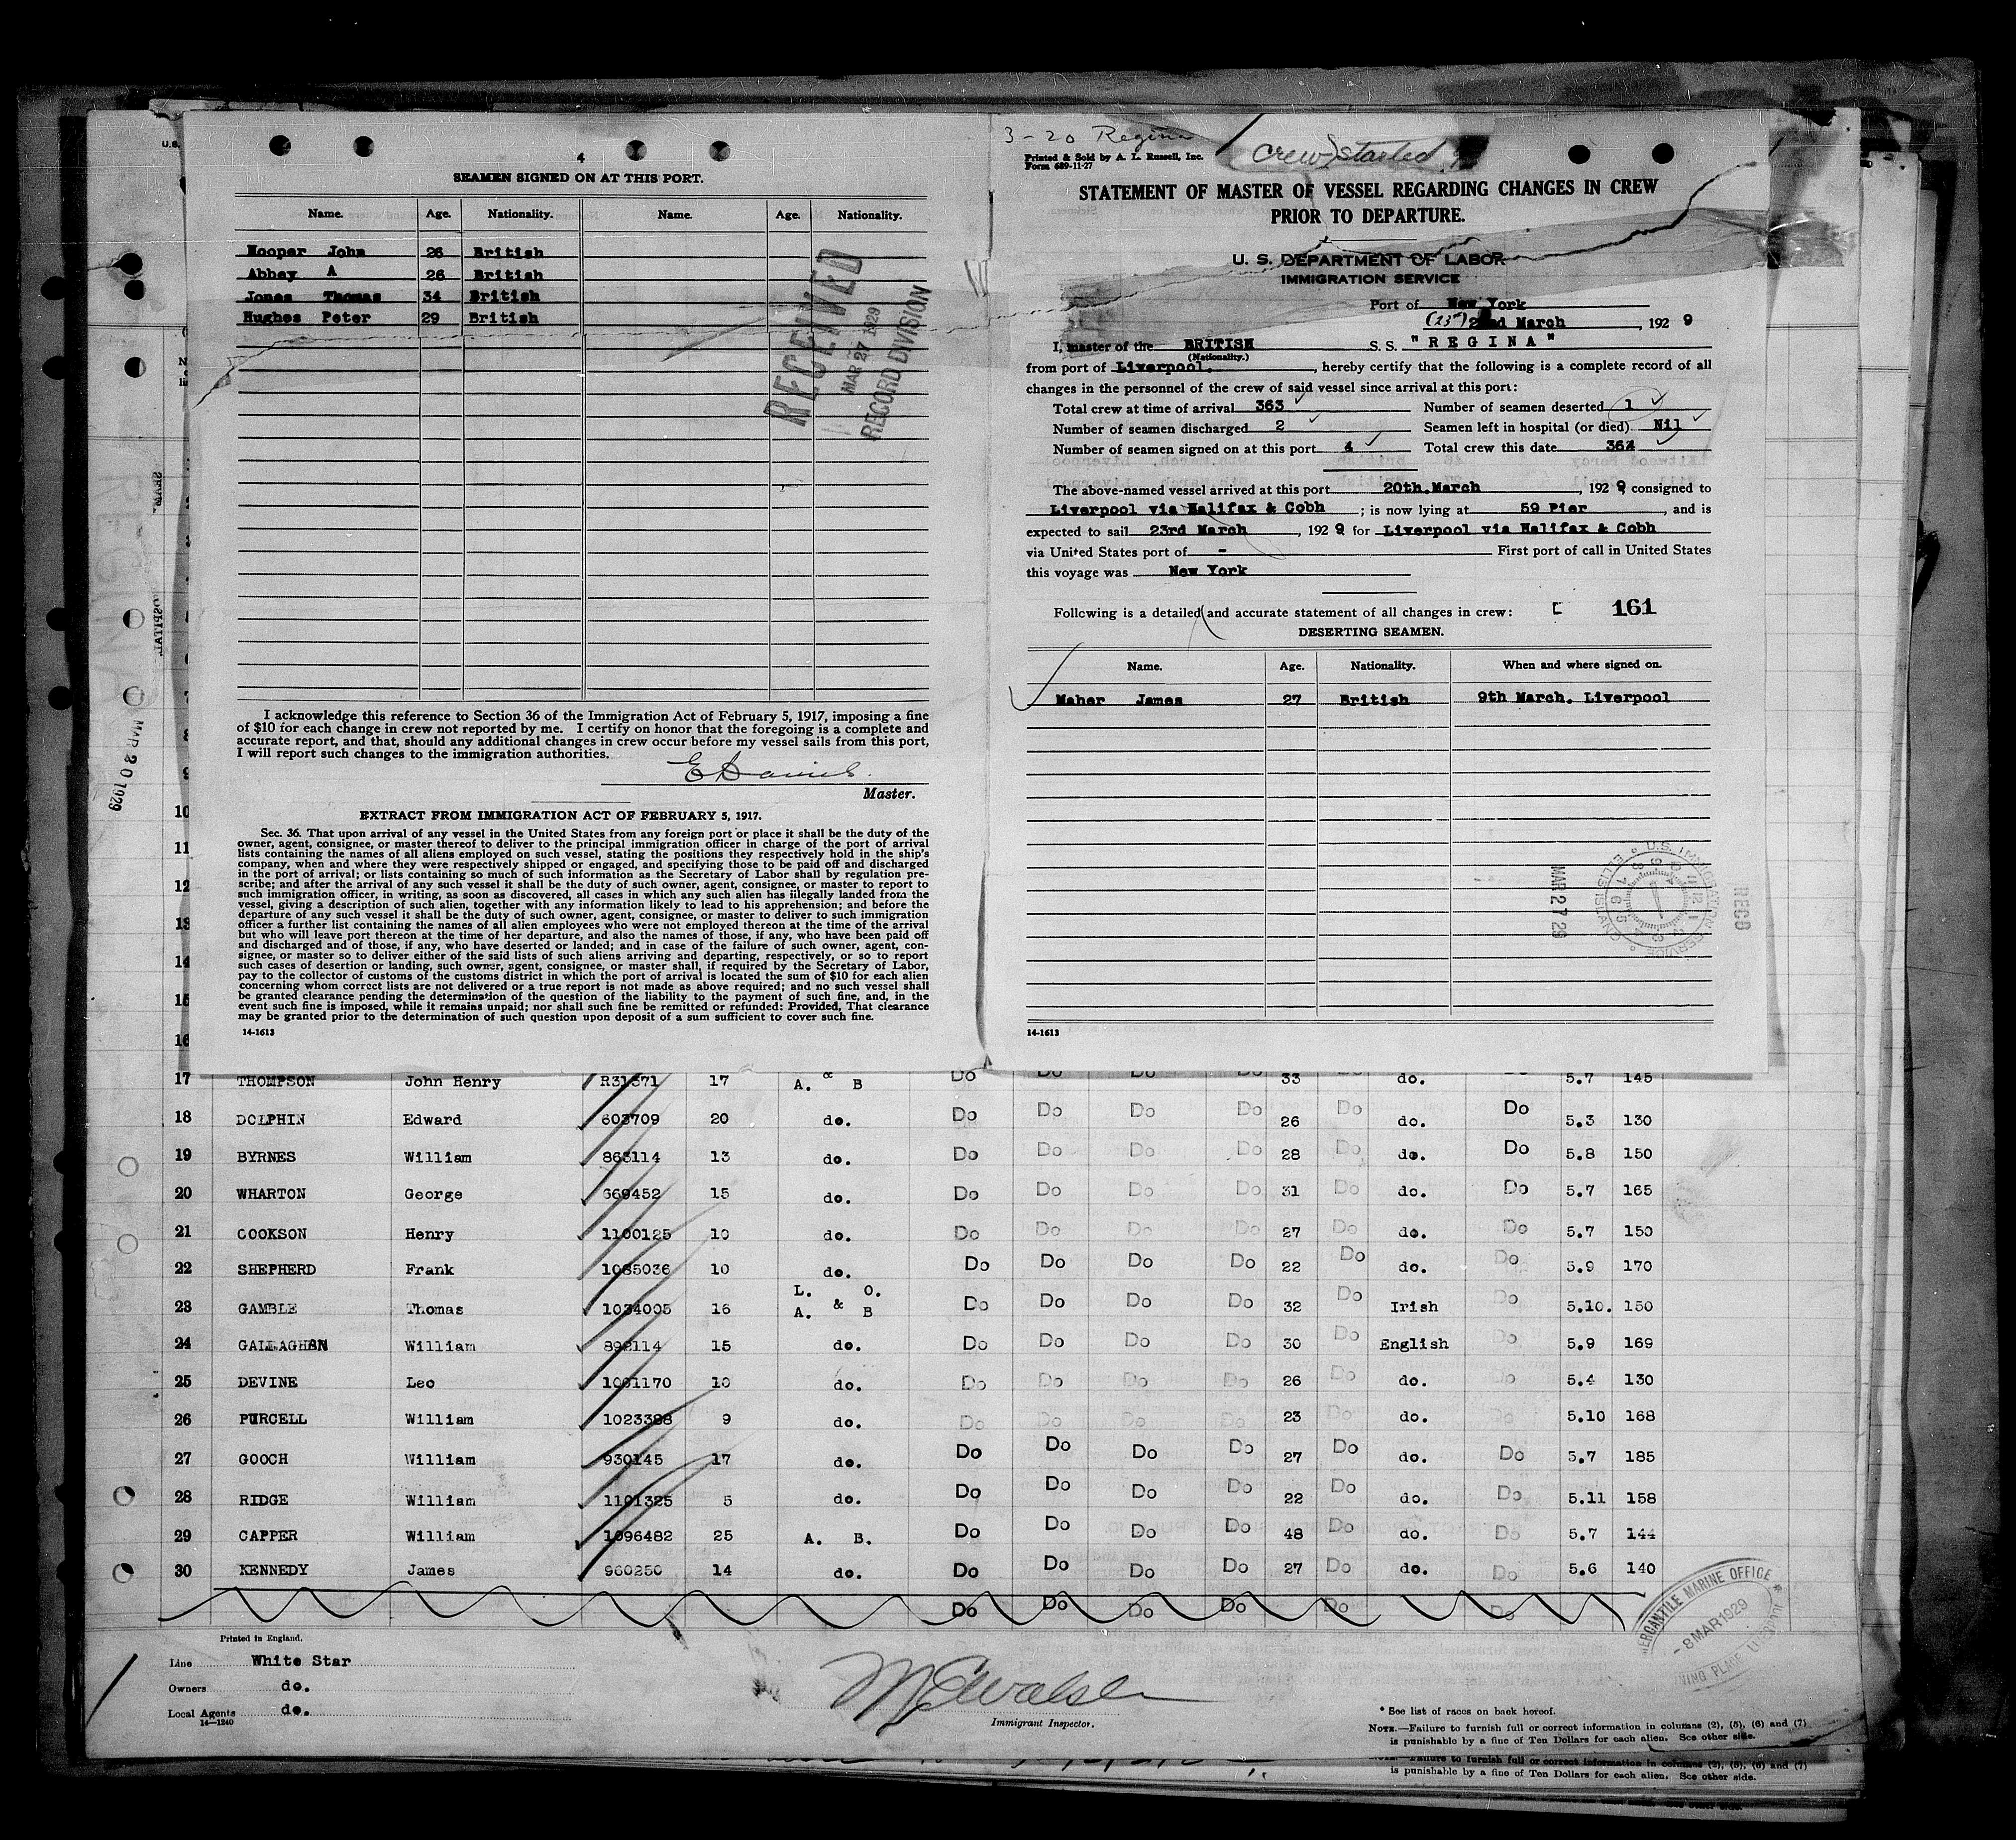 4
SEAMEN SIGNED ON AT THIS PORT.
Name. Age. Nationality. Name. Age. Nationality.
Hooper John 26 British
Abbey A 26 British
Jones Thomas 34 British
Hughes Peter 29 British
RECEIVED
MAR 27 1929
RECORD DIVISION
I acknowledge this reference to Section 36 of the Immigration Act of February 5, 1917, imposing a fine
of $10 for each change in crew not reported by me. I certify on honor that the foregoing is a complete and
accurate report, and that, should any additional changes in crew occur before my vessel sails from this port,
I will report such changes to the immigration authorities.
Master.
EXTRACT FROM IMMIGRATION ACT OF FEBRUARY 5, 1917.
Sec. 36. That upon arrival of any vessel in the United States from any foreign port or place it shall be the duty of the
owner, agent, consignee, or master thereof to deliver to the principal immigration officer in charge of the port of arrival
lists containing the names of all aliens employed on such vessel, stating the positions they respectively hold in the ship's
company, when and where they were respectively shipped or engaged, and specifying those to be paid off and discharged
in the port of arrival; or lists containing so much of such information as the Secretary of Labor shall by regulation pre-
scribe; and after the arrival of any such vessel it shall be the duty of such owner, agent, consignee, or master to report to
such immigration officer, in writing, as soon as discovered, all cases in which any such alien has illegally landed from the
vessel, giving a description of such alien, together with any information likely to lead to his apprehension; and before the
departure of any such vessel it shall be the duty of such owner, agent, consignee, or master to deliver to such immigration
officer a further list containing the names of all alien employees who were not employed thereon at the time of the arrival
but who will leave port thereon at the time of her departure, and also the names of those, if any, who have been paid off
and discharged and of those, if any, who have deserted or landed; and in case of the failure of such owner, agent, con-
signee, or master so to deliver either of the said lists of such aliens arriving and departing, respectively, or so to report
such cases of desertion or landing, such owner, agent, consignee, or master shall, if required by the Secretary of Labor,
pay to the collector of customs of the customs district in which the port of arrival is located the sum of $10 for each alien
concerning whom correct lists are not delivered or a true report is not made as above required; and no such vessel shall
be granted clearance pending the determination of the question of the liability to the payment of such fine, and, in the
event such fine is imposed, while it remains unpaid; nor shall such fine be remitted or refunded: Provided, That clearance
may be granted prior to the determination of such question upon deposit of a sum sufficient to cover such fine.
14-1613
3-20 Regina
Printed & Sold by A. L. Russell, Inc.
Form 689-11-27
Crew started
STATEMENT OF MASTER OF VESSEL REGARDING CHANGES IN CREW
PRIOR TO DEPARTURE.
U. S. DEPARTMENT OF LABOR
IMMIGRATION SERVICE
Port of New York
(23rd) 22nd March, 1929
I, master of the BRITISH S. S. "REGINA"
(Nationality.)
from port of Liverpool., hereby certify that the following is a complete record of all
changes in the personnel of the crew of said vessel since arrival at this port:
Total crew at time of arrival 363 Number of seamen deserted 1
Number of seamen discharged 2 Seamen left in hospital (or died) Nil
Number of seamen signed on at this port 4 Total crew this date 364
The above-named vessel arrived at this port 20th.March, 1929, consigned to
Liverpool via Halifax & Cobh; is now lying at 59 Pier, and is
expected to sail 23rd March, 1929 for Liverpool via Halifax & Cobh
via United States port of - First port of call in United States
this voyage was New York
Following is a detailed and accurate statement of all changes in crew: 161
DESERTING SEAMEN.
Name. Age. Nationality. When and where signed on.
Maher James 27 British 9th March. Liverpool
MAR 27 29
U.S. IMMIGRATION SERVICE ELLIS ISLAND
RECD
14-1613
MAR 20 1929
17 THOMPSON John Henry R31571 17 A. & B Do Do Do Do 33 Do do. Do 5.7 145
18 DOLPHIN Edward 603709 20 do. Do Do Do Do 26 Do do. Do 5.3 130
19 BYRNES William 863114 13 do. Do Do Do Do 28 Do do. Do 5.8 150
20 WHARTON George 669452 15 do. Do Do Do Do 31 Do do. Do 5.7 165
21 COOKSON Henry 1100125 10 do. Do Do Do Do 27 Do do. Do 5.7 150
22 SHEPHERD Frank 1065036 10 do. Do Do Do Do 22 Do do. Do 5.9 170
L. O.
23 GAMBLE Thomas 1034005 16 A. & B Do Do Do Do 32 Do Irish Do 5.10. 150
24 GALLAGHAN William 892114 15 do. Do Do Do Do 30 Do English Do 5.9 169
25 DEVINE Leo 1001170 10 do. Do Do Do Do 26 Do do. Do 5.4 130
26 PURCELL William 1023388 9 do. Do Do Do Do 23 do. Do 5.10 168
27 GOOCH William 930145 17 do. Do Do Do Do 27 Do do. Do 5.7 185
28 RIDGE William 1101325 5 do. Do Do Do Do 22 Do do. Do 5.11 158
29 CAPPER William 1096482 25 A. B. Do Do Do Do 48 Do do. Do 5.7 144
30 KENNEDY James 960250 14 do. Do Do Do Do 27 Do do. Do 5.6 140
Do Do Do Do Do Do
Printed in England.
Line White Star
Owners do.
Local Agents do.
14—1240
Immigrant Inspector.
MERCANTILE MARINE OFFICE
-8 MAR 1929
* See list of races on back hereof.
NOTE.—Failure to furnish full or correct information in columns (2), (5), (6) and (7)
is punishable by a fine of Ten Dollars for each alien. See other side.
Failure to furnish full or correct information in columns (2), (5), (6) and (7)
is punishable by a fine of Ten Dollars for each alien. See other side.